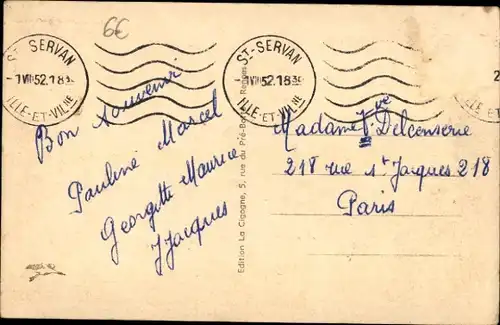 6€
ST-SERVAN
ILLE-ET-VILNE
ST-SERVAN
ILLE-ET-VILNE
Bon Souvenir
Pauline Marcel
Georgette Maurice
Jacques
Edition La Cigogne, 5, rue du Pré-Rennes
Madame Vve Delcenserie
218 rue St Jacques 218
Paris